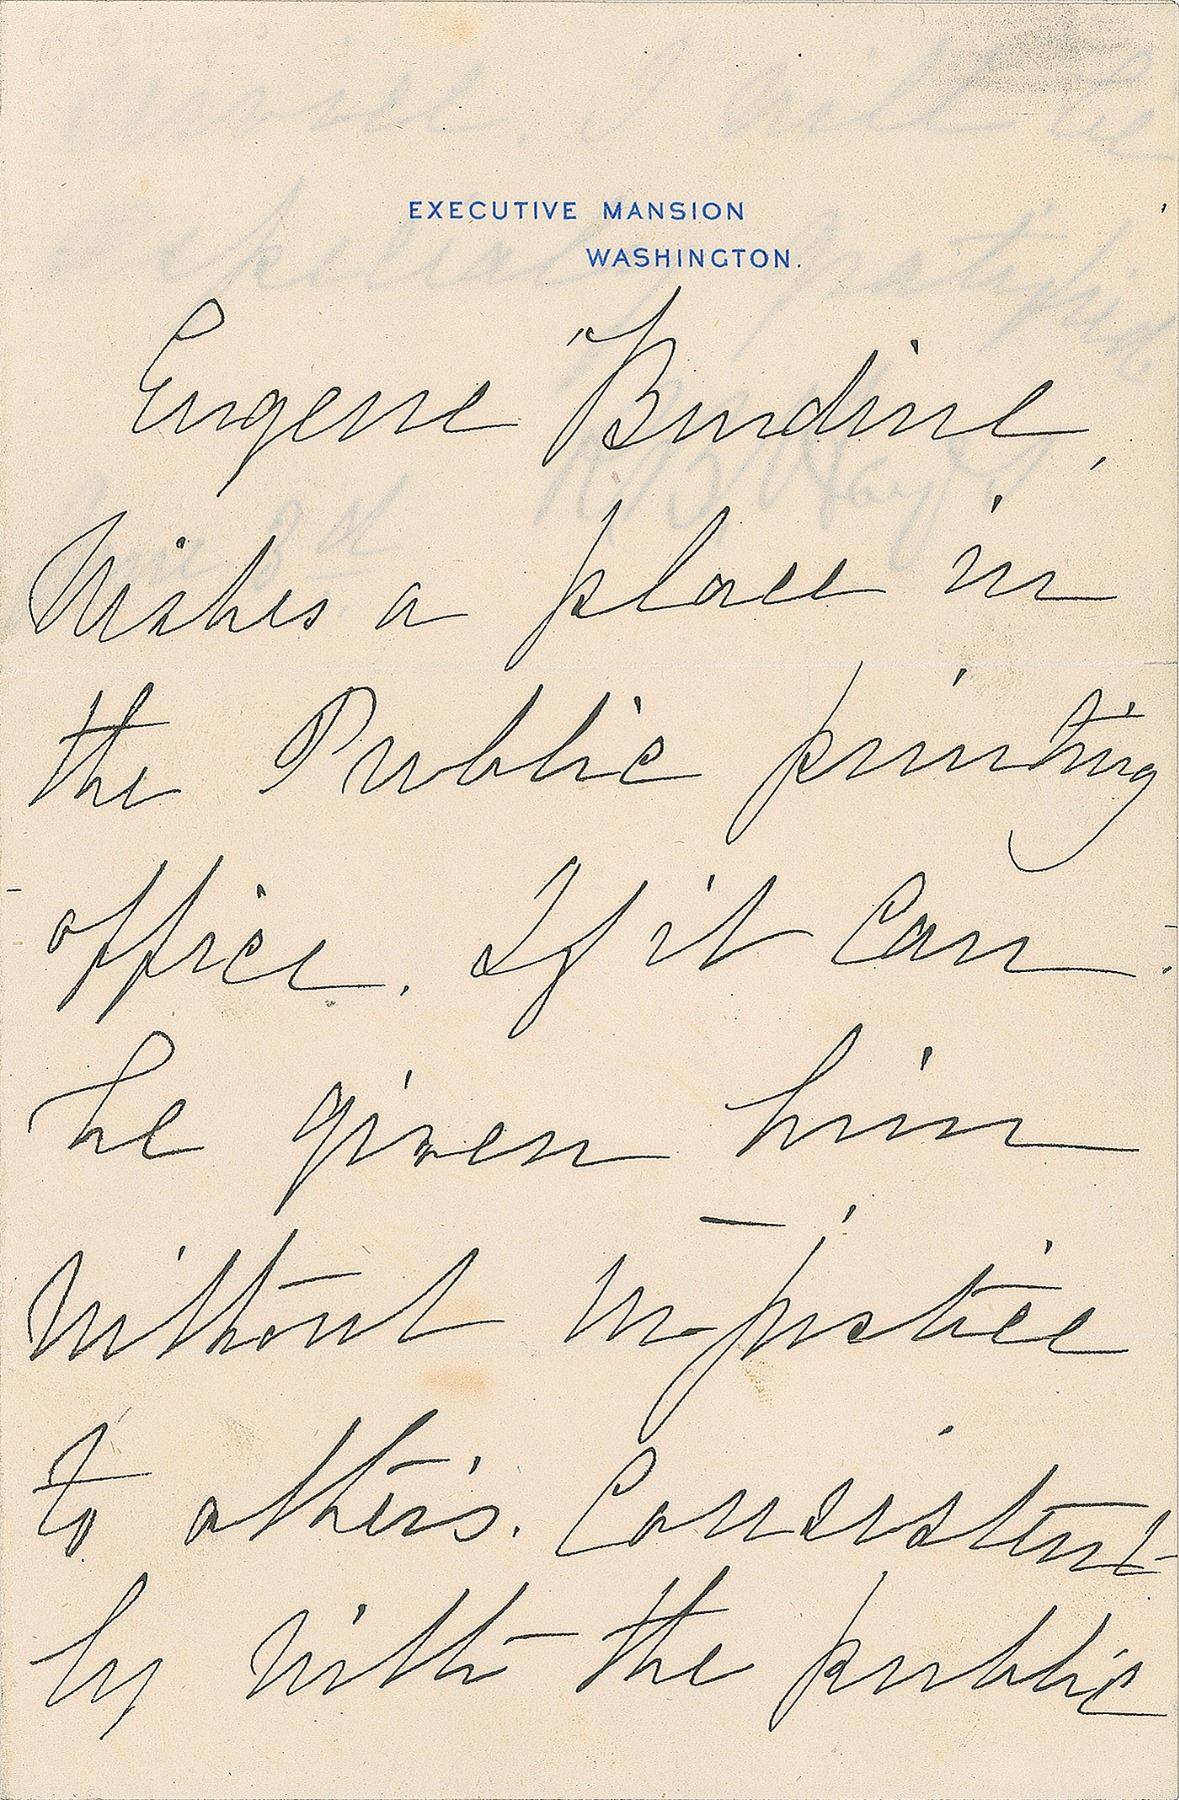 EXECUTIVE MANSION
WASHINGTON.
Eugene Burdine,
wishes a place in
the Public printing
office. If it can
be given him
without injustice
to others. Consistent-
ly with the public